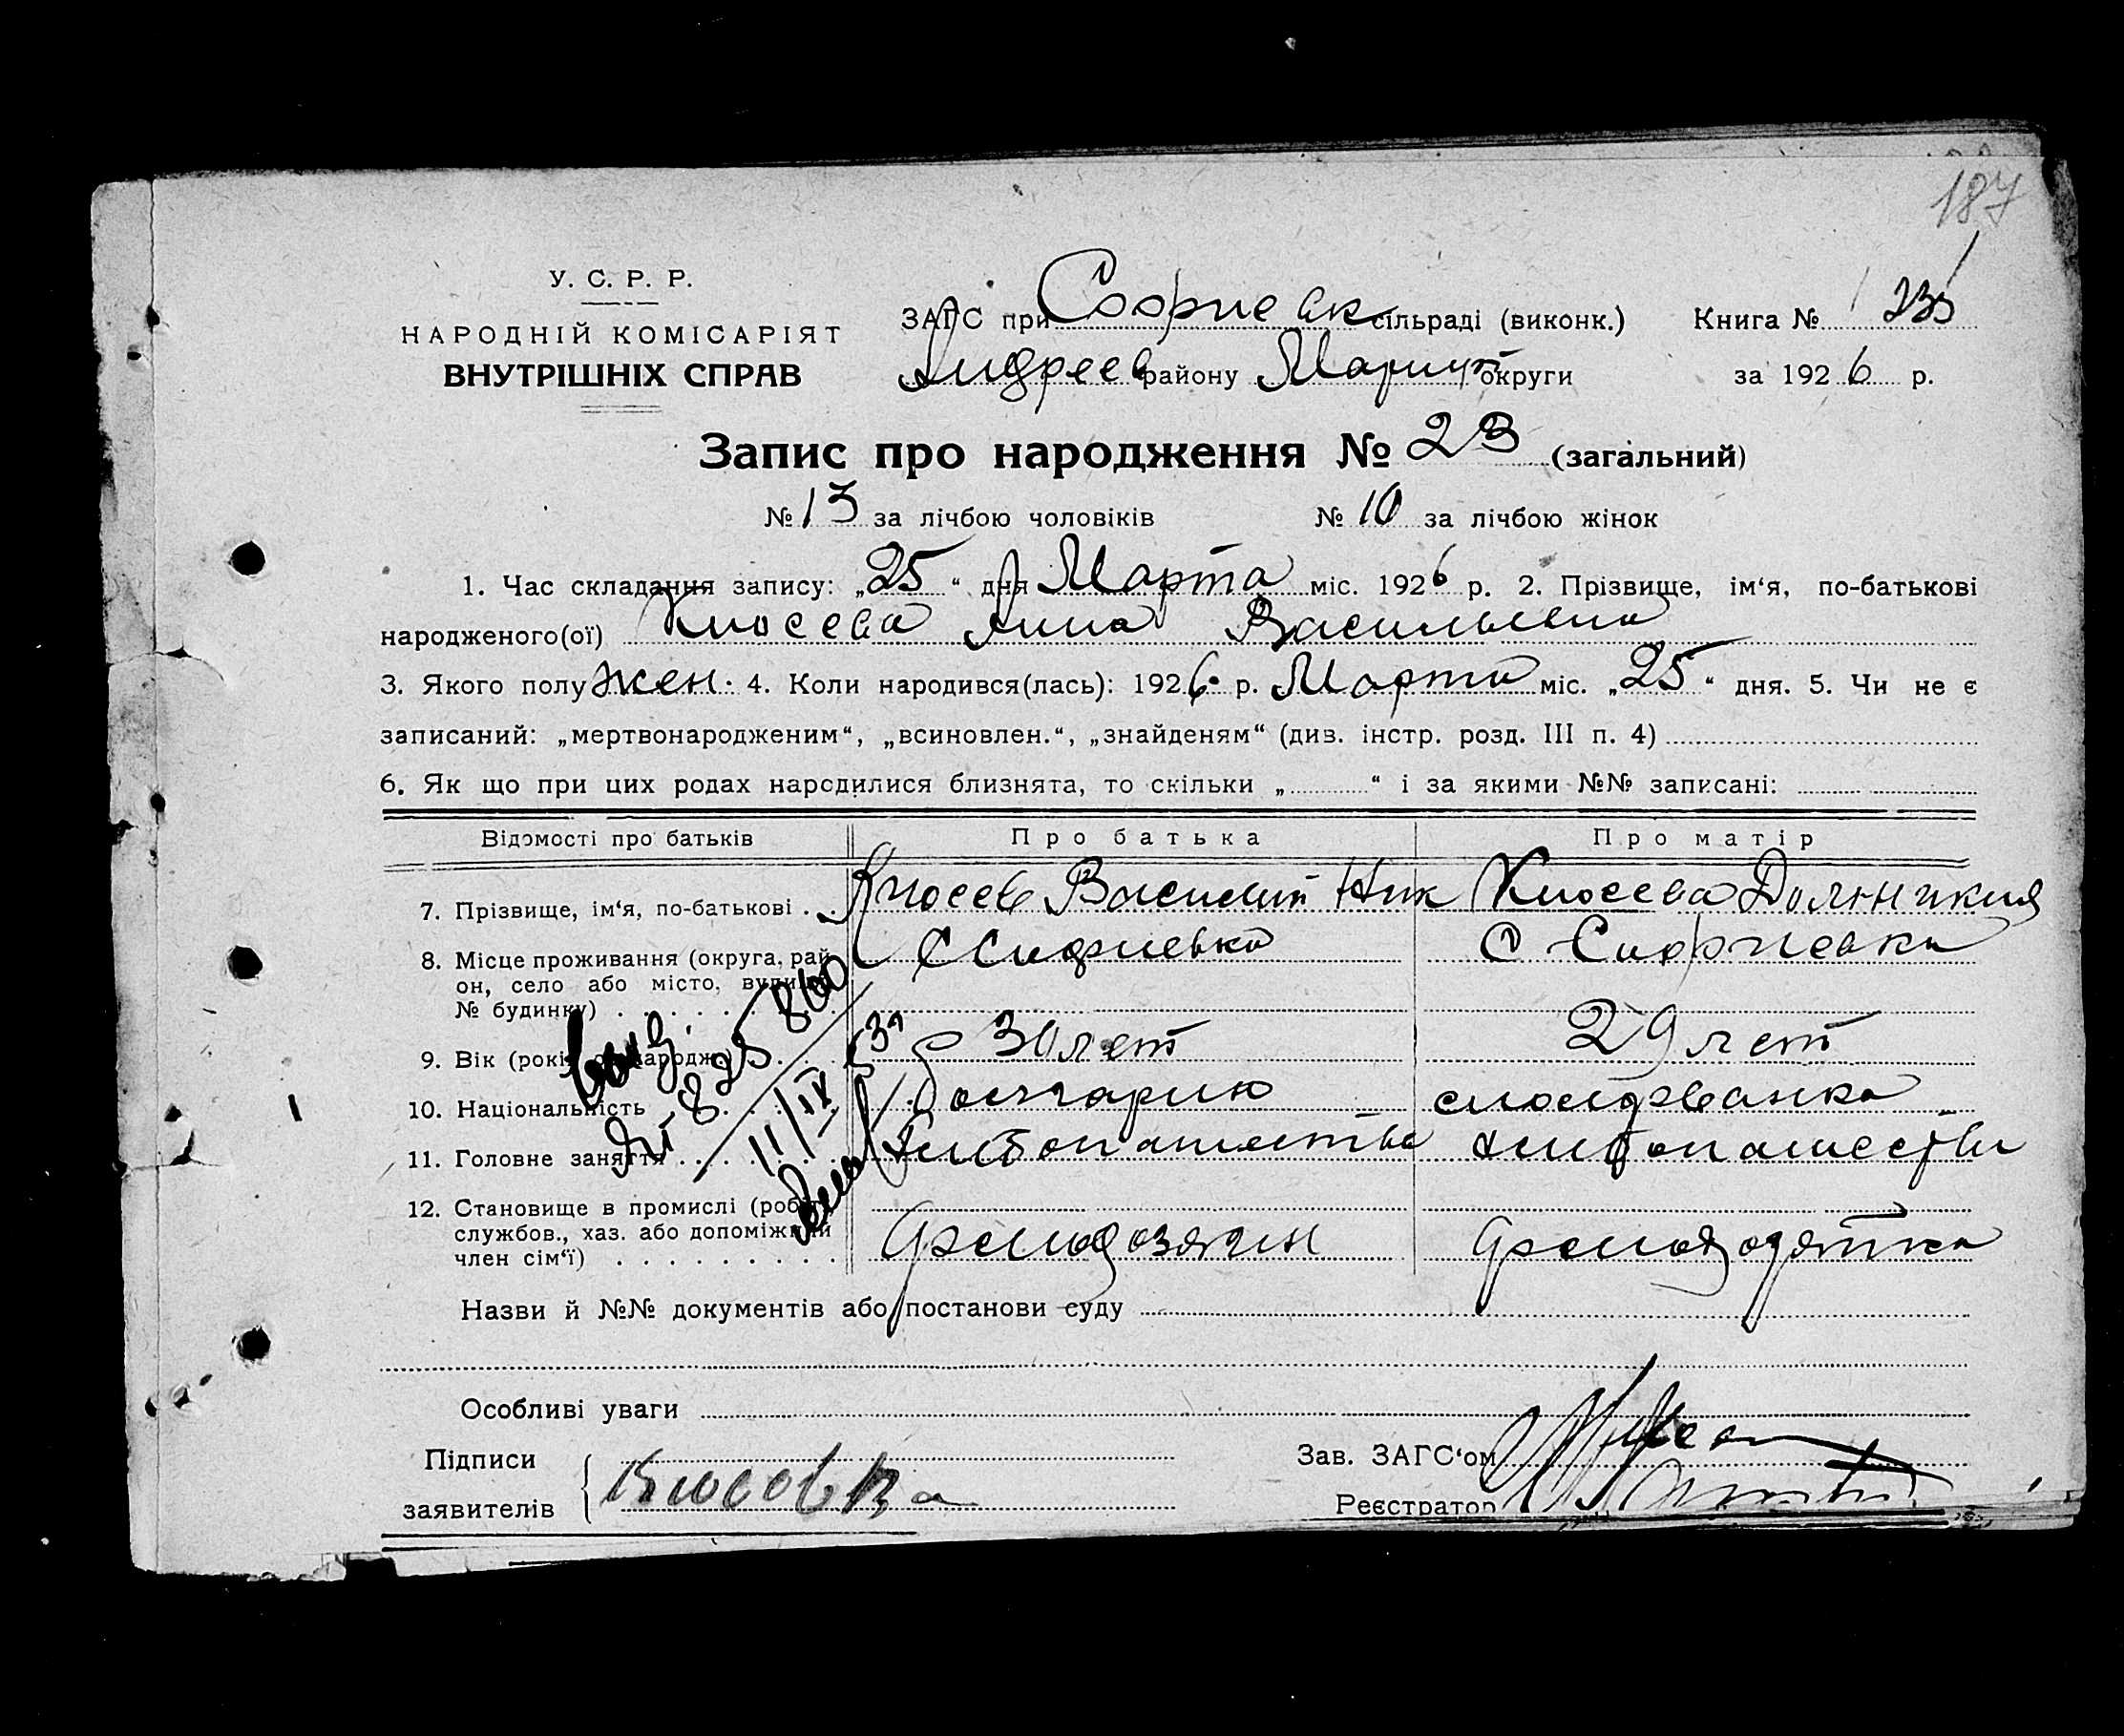 187
У. С. Р. Р.
НАРОДНІЙ КОМІСАРІЯТ
ВНУТРІШНІХ СПРАВ
ЗАГС при Софиевк сільраді (виконк.) Книга №
Андреев району Мариуп округи за 1926 р.
Запис про народження № 23 (загальний)
№ 13 за лічбою чоловіків № 10 за лічбою жінок
1. Час складання запису: „25“ дня Марта міс. 1926 р. 2. Прізвище, ім'я, по-батькові
народженого(ої) Киосева Анна Васильевна
3. Якого полу жен. 4. Коли народився(лась): 1926 р. Марта міс. „25“ дня. 5. Чи не є
записаний: „мертвонародженим“, „всиновлен.“, „знайденям“ (див. інстр. розд. III п. 4)
6. Як що при цих родах народилися близнята, то скільки „ “ і за якими №№ записані:
Відомості про батьків Про батька Про матір
7. Прізвище, ім'я, по-батькові Киосев Василий Ник Киосева
8. Місце проживання (округа, рай с Софиевка с Софиевка
он, село або місто, вулиця
№ будинку)
9. Вік (років, народж.) 30 лет 29 лет
10. Національність болгарин молдованка
11. Головне заняття хлебопашество хлебопашество
12. Становище в промислі (робіт.
службов., хаз. або допоміжний
член сім'ї)
11/IX
Назви й №№ документів або постанови суду
Особливі уваги
Підписи
заявителів
Зав. ЗАГС'ом
Реєстратор